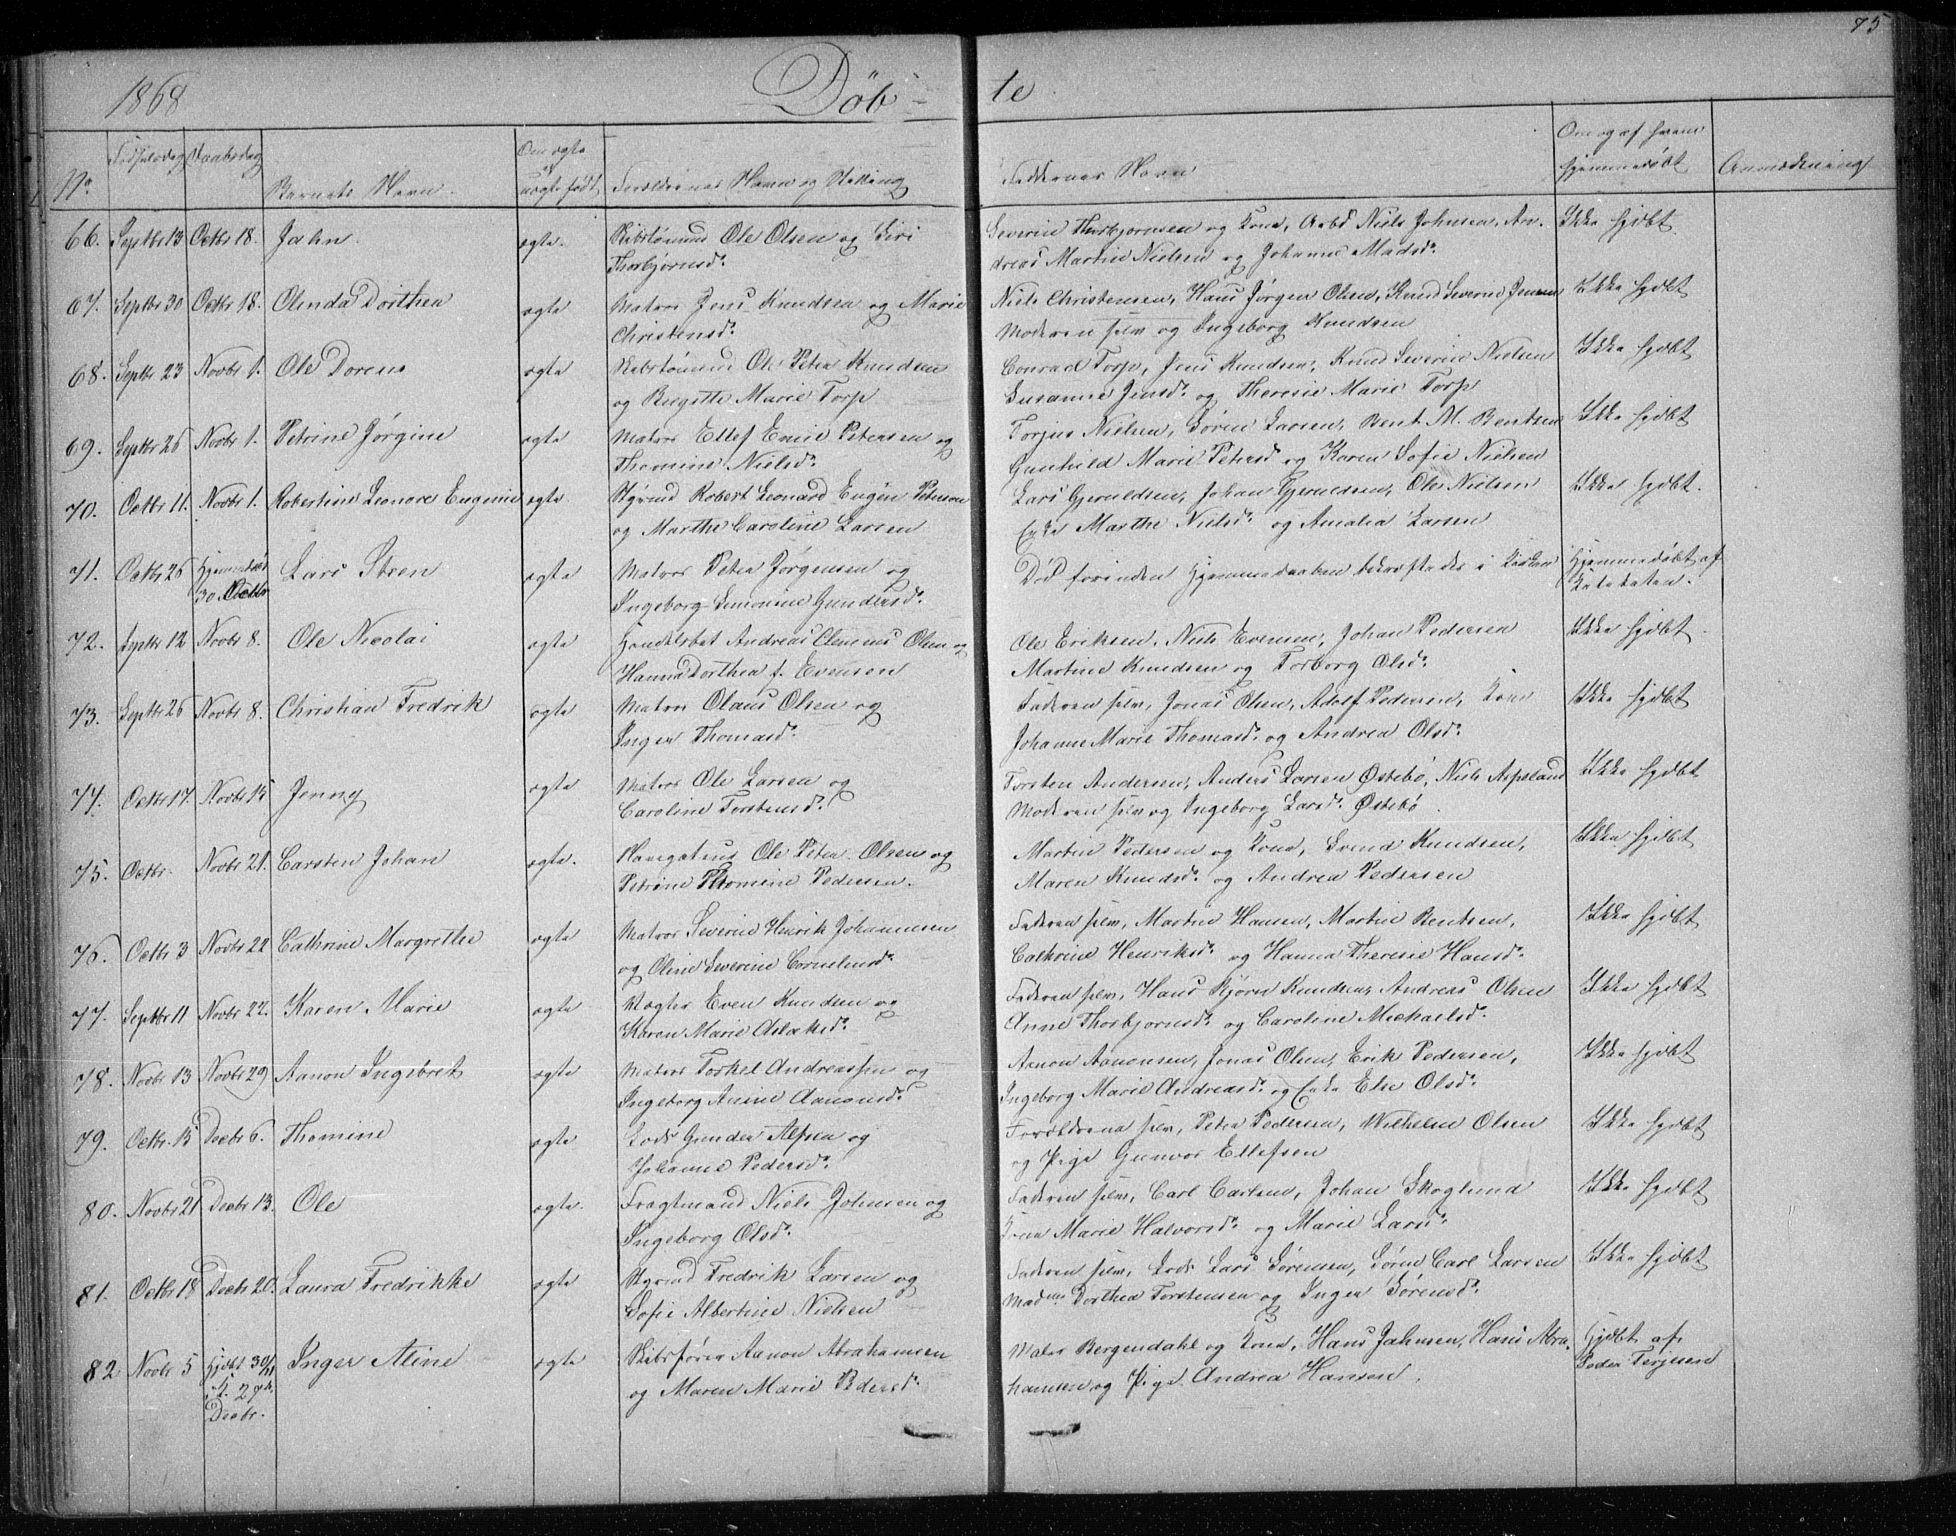 75
1868 Döb- te
No Fødselsdag Daabsdag Barnets Navn. Om ægte og uægte født Forældrenes Navn og Stilling Faddernes Navn Om og af hvem hjemmedøbt Anmærkning
66. Septbr 13 Octbr 18. Jahn. ægte. Skibstømmd Ole Olsen og Siri Severin Thorbjørnsen og Kone, Arbd Niels Johnsen, An- Ikke hjdbt
Thorbjørnsd. dreas Martin Nielsen og Johanne Madsd.
67. Septbr 30 Octbr 18. Olinda Dorthea ægte Matros Jens Knudsen og Marie Niels Christensen, Hans Jørgen Olsen, Knud Severin Jensen Ikke hjdbt
Christensd. Moderen selv og Ingeborg Knudsen
68. Septbr 23 Novbr 1. Ole Dorens ægte Skibstømmd Ole Peter Knudsen Conrad Torp, Jens Knudsen, Knud Severin Nielsen Ikke hjdbt
og Birgitte Marie Torp Susanne Jensd. og Theresie Marie Torp
69. Septbr 26 Novbr 1. Petrine Jørgine ægte Matros Ellef Emil Petersen og Torjus Nielsen, Søren Larsen, Bent M. Bentsen Ikke hjdbt
Thomine Nielsd. Gunhild Marie Petersd og Karen Sofie Nielsen
70. Octbr 11. Novbr 1. Robertine Leonore Eugenie ægte Styrmd Robert Leonard Eugén Peterson Lars Gjeruldsen, Johan Gjeruldsen, Ole Nielsen Ikke hjdbt.
og Marthe Caroline Larsen Enke Marthe Nielsd. og Amalia Larsen
71. Octbr 26 Hjemmedøbt 30 Octbr Lars Stren ægte Matros Peter Jørgensen og Død forinden Hjemmedaaben bekræftedes i Kirken Hjemmedøbt af
Ingeborg Simonine Gundersd.
72. Septbr 12 Novbr 8. Ole Nicolai ægte Handelsbet Andreas Clemens Olsen og Ole Eriksen, Niels Evensen, Johan Pedersen Ikke hjdbt.
Hanna Dorthea f. Evensen Martine Knudsen og Torborg Olsd.
73. Septbr 26 Novbr 8. Christian Fredrik ægte Matros Olaus Olsen og Faderen selv, Jonas Olsen, Adolf Pedersen, Kone Ikke hjdbt
Inger Thomasd. Johanne Marie Thomasd. og Andrea Olsd.
74. Octbr 17. Novbr 15 Jenny ægte Matros Ole Larsen og Torsten Andersen, Anders Larsen Østebö, Niels Aspeland Ikke hjdbt
Caroline Torstensd. Moderen selv og Ingeborg Larsd. Østebö
75. Octbr. Novbr 21. Carsten Johan ægte. Navigatrus Ole Peter Olsen og Martin Pedersen og Kone, Svend Knudsen, Ikke hjdbt
Petrine Thomine Pedersen. Maren Knudsd. og Andrea Pedersen
76. Octbr 3 Novbr 22 Cathrine Margrethe ægte Matros Severin Henrik Johannesen Faderen selv, Martin Hansen, Martin Bentsen, Ikke hjdbt
og Oline Severine Corneliusd. Cathrine Henriksd. og Hanna Theresie Hansd.
77. Septbr 11 Novbr 22. Karen Marie ægte Vægter Even Knudsen og Faderen selv, Hans Bjørn Knudsen, Andreas Olsen Ikke hjdbt
Karen Marie Aslaksd. Anne Thorbjørnsd. og Caroline Michaelsd.
78. Novbr 13 Novbr 29 Aanon Ingebret ægte Matros Torkel Andreassen og Aanon Aanonsen, Jonas Olsen, Erik Pedersen, Ikke hjdbt
Ingeborg Anine Aanonsd. Ingeborg Marie Andreasd. og Enke Else Olsd.
79. Octbr. 15 Decbr 6. Thomine ægte Lods Gunder Alfsen og Forældrene selv, Peter Pedersen, Wilhelm Olsen Ikke hjdbt
Johanne Pedersd. og Pige Gunvor Ellefsen
80. Novbr 21 Decbr 13. Ole ægte. Fragtmand Niels Johnsen og Faderen selv, Carl Carlsen, Johan Skoglund Ikke hjdbt
Ingeborg Olsd. Kone Marie Halvorsd. og Marie Larsd.
81. Octbr 18 Decbr 20. Laura Fredrikke ægte Styrmd Fredrik Larsen og Faderen selv, Lods Lars Sørensen, Søren Carl Larsen Ikke hjdbt
Sofie Albertine Nielsen Madme Dorthea Torstensen og Inger Sørensd.
82 Novbr 5 Hjdbt 30/11 i K. 27de Decbr. Inger Aline ægte Skibsfører Aanon Abrahamsen Maler Bergendahl og Kone, Hans Jahnsen, Hans Abra- Hjdbt af
og Maren Marie Pedersd. hamsen og Pige Andrea Hansen. Peder Terjesen